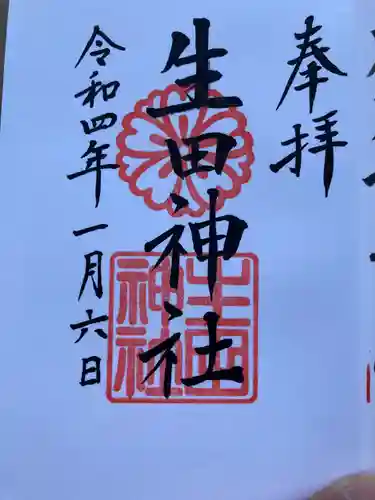 奉拝
生田神社
令和四年一月六日
生田神社